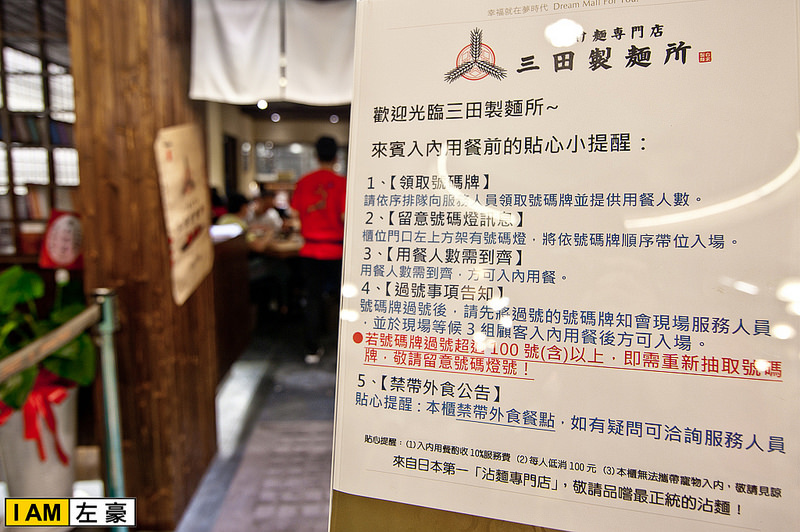 幸福就在夢時代 Dream Mall For You
麵専門店
三田製麵所
歡迎光臨三田製麵所~
來賓入內用餐前的貼心小提醒：
1、【領取號碼牌】
請依序排隊向服務人員領取號碼牌並提供用餐人數。
2、【留意號碼燈訊息】
櫃位門口左上方架有號碼燈，將依號碼牌順序帶位入場。
3、【用餐人數需到齊】
用餐人數需到齊，方可入內用餐。
4、【過號事項告知】
號碼牌過號後，請先將過號的號碼牌知會現場服務人員
，並於現場等候3組顧客入內用餐後方可入場。
●若號碼牌過號超過100號(含)以上，即需重新抽取號碼
牌，敬請留意號碼燈號！
5、【禁帶外食公告】
貼心提醒：本櫃禁帶外食餐點，如有疑問可洽詢服務人員
貼心提醒：(1)入內用餐酌收10%服務費 (2)每人低消100元 (3)本櫃無法攜帶寵物入內，敬請見諒
來自日本第一「沾麵專門店」，敬請品嚐最正統的沾麵！
I AM 左豪